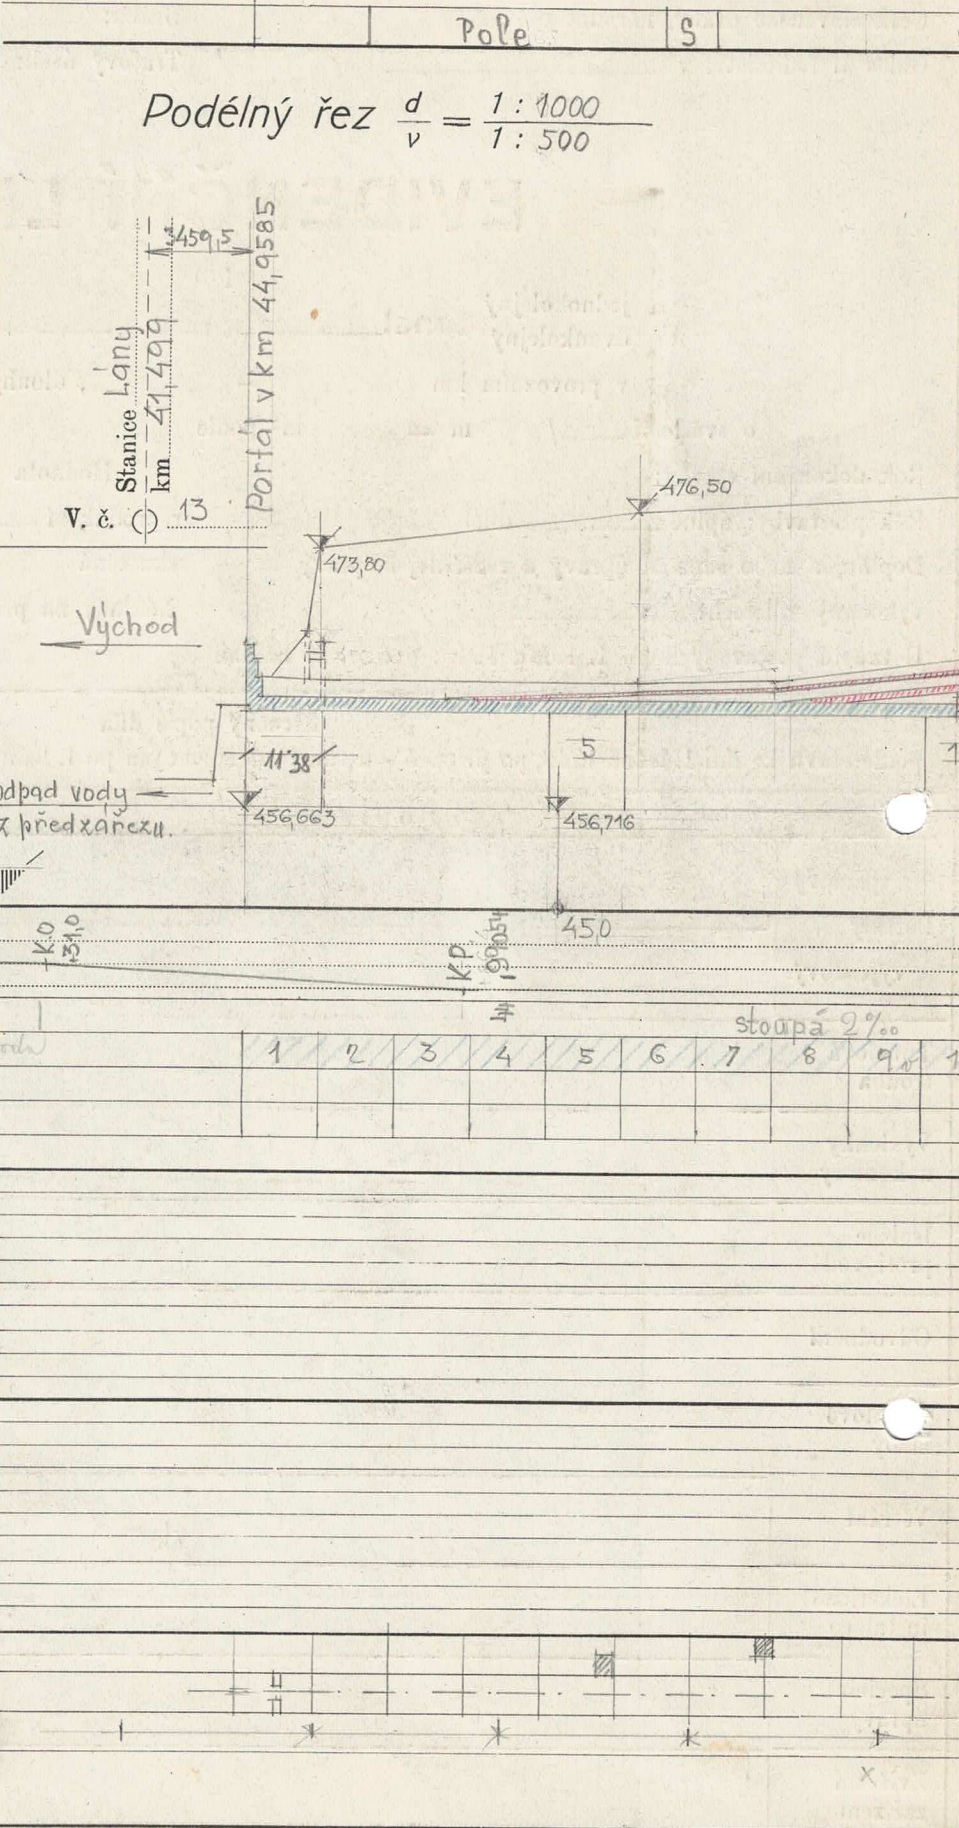 Pole S
Podélný řez d/v = 1 : 1000 / 1 : 500
3459,5
Stanice Lány
km 41,499
Portál v km 44,9585
V. č. 13
476,50
473,80
Východ
11˙38
5
1
odpad vody
z předzářezu.
456,663
456,716
45,0
K.O
+31,0
K.P.
44
stoupá 2‰
1 2 3 4 5 6 7 8 9 1
x